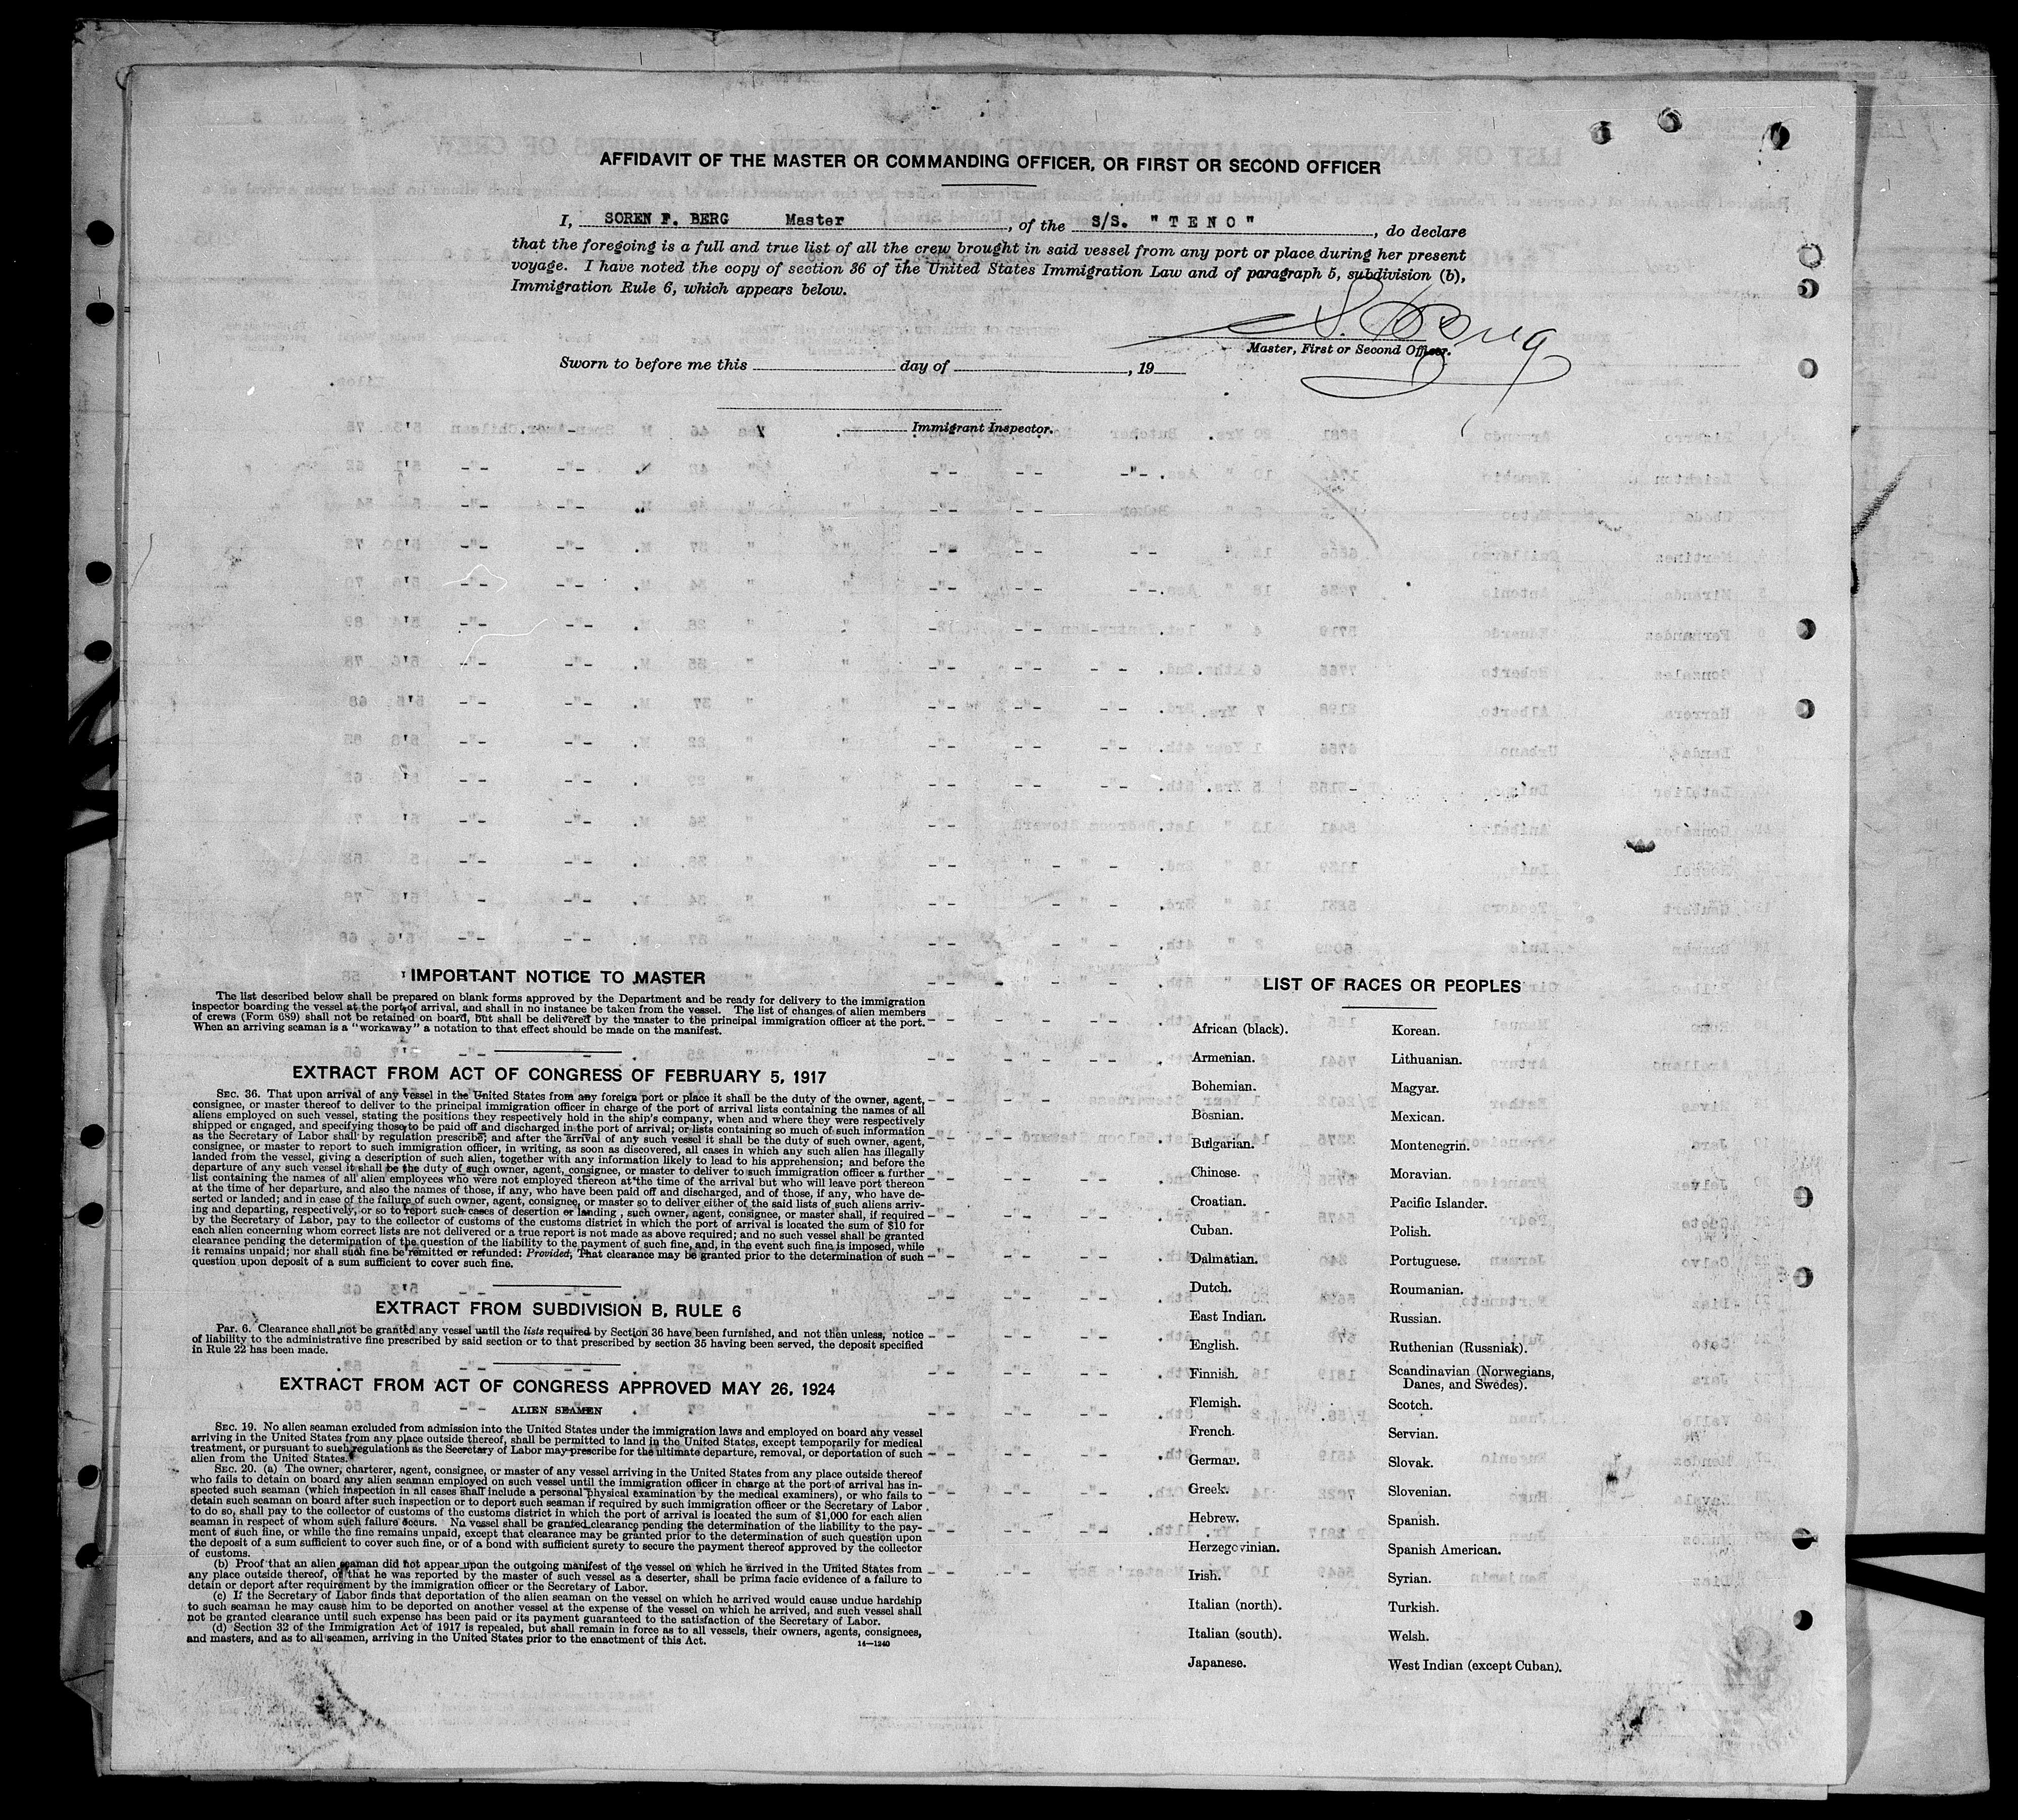 AFFIDAVIT OF THE MASTER OR COMMANDING OFFICER, OR FIRST OR SECOND OFFICER
I, SOREN F. BERG Master, of the S/S. "TENO", do declare
that the foregoing is a full and true list of all the crew brought in said vessel from any port or place during her present
voyage. I have noted the copy of section 36 of the United States Immigration Law and of paragraph 5, subdivision (b),
Immigration Rule 6, which appears below.
S. Berg
Master, First or Second Officer.
Sworn to before me this day of , 19
Immigrant Inspector.
IMPORTANT NOTICE TO MASTER
The list described below shall be prepared on blank forms approved by the Department and be ready for delivery to the immigration
inspector boarding the vessel at the port of arrival, and shall in no instance be taken from the vessel. The list of changes of alien members
of crews (Form 689) shall not be retained on board, but shall be delivered by the master to the principal immigration officer at the port.
When an arriving seaman is a "workaway" a notation to that effect should be made on the manifest.
EXTRACT FROM ACT OF CONGRESS OF FEBRUARY 5, 1917
SEC. 36. That upon arrival of any vessel in the United States from any foreign port or place it shall be the duty of the owner, agent,
consignee, or master thereof to deliver to the principal immigration officer in charge of the port of arrival lists containing the names of all
aliens employed on such vessel, stating the positions they respectively hold in the ship's company, when and where they were respectively
shipped or engaged, and specifying those to be paid off and discharged in the port of arrival; or lists containing so much of such information
as the Secretary of Labor shall by regulation prescribe; and after the arrival of any such vessel it shall be the duty of such owner, agent,
consignee, or master to report to such immigration officer, in writing, as soon as discovered, all cases in which any such alien has illegally
landed from the vessel, giving a description of such alien, together with any information likely to lead to his apprehension; and before the
departure of any such vessel it shall be the duty of such owner, agent, consignee, or master to deliver to such immigration officer a further
list containing the names of all alien employees who were not employed thereon at the time of the arrival but who will leave port thereon
at the time of her departure, and also the names of those, if any, who have been paid off and discharged, and of those, if any, who have de-
serted or landed; and in case of the failure of such owner, agent, consignee, or master so to deliver either of the said lists of such aliens arriv-
ing and departing, respectively, or so to report such cases of desertion or landing, such owner, agent, consignee, or master shall, if required
by the Secretary of Labor, pay to the collector of customs of the customs district in which the port of arrival is located the sum of $10 for
each alien concerning whom correct lists are not delivered or a true report is not made as above required; and no such vessel shall be granted
clearance pending the determination of the question of the liability to the payment of such fine, and, in the event such fine is imposed, while
it remains unpaid; nor shall such fine be remitted or refunded: Provided, That clearance may be granted prior to the determination of such
question upon deposit of a sum sufficient to cover such fine.
EXTRACT FROM SUBDIVISION B, RULE 6
Par. 6. Clearance shall not be granted any vessel until the lists required by Section 36 have been furnished, and not then unless, notice
of liability to the administrative fine prescribed by said section or to that prescribed by section 35 having been served, the deposit specified
in Rule 22 has been made.
EXTRACT FROM ACT OF CONGRESS APPROVED MAY 26, 1924
ALIEN SEAMEN
SEC. 19. No alien seaman excluded from admission into the United States under the immigration laws and employed on board any vessel
arriving in the United States from any place outside thereof, shall be permitted to land in the United States, except temporarily for medical
treatment, or pursuant to such regulations as the Secretary of Labor may prescribe for the ultimate departure, removal, or deportation of such
alien from the United States.
SEC. 20. (a) The owner, charterer, agent, consignee, or master of any vessel arriving in the United States from any place outside thereof
who fails to detain on board any alien seaman employed on such vessel until the immigration officer in charge at the port of arrival has in-
spected such seaman (which inspection in all cases shall include a personal physical examination by the medical examiners), or who fails to
detain such seaman on board after such inspection or to deport such seaman if required by such immigration officer or the Secretary of Labor
to do so, shall pay to the collector of customs of the customs district in which the port of arrival is located the sum of $1,000 for each alien
seaman in respect of whom such failure occurs. No vessel shall be granted clearance pending the determination of the liability to the pay-
ment of such fine, or while the fine remains unpaid, except that clearance may be granted prior to the determination of such question upon
the deposit of a sum sufficient to cover such fine, or of a bond with sufficient surety to secure the payment thereof approved by the collector
of customs.
(b) Proof that an alien seaman did not appear upon the outgoing manifest of the vessel on which he arrived in the United States from
any place outside thereof, or that he was reported by the master of such vessel as a deserter, shall be prima facie evidence of a failure to
detain or deport after requirement by the immigration officer or the Secretary of Labor.
(c) If the Secretary of Labor finds that deportation of the alien seaman on the vessel on which he arrived would cause undue hardship
to such seaman he may cause him to be deported on another vessel at the expense of the vessel on which he arrived, and such vessel shall
not be granted clearance until such expense has been paid or its payment guaranteed to the satisfaction of the Secretary of Labor.
(d) Section 32 of the Immigration Act of 1917 is repealed, but shall remain in force as to all vessels, their owners, agents, consignees,
and masters, and as to all seamen, arriving in the United States prior to the enactment of this Act.
14—1240
LIST OF RACES OR PEOPLES
African (black).
Armenian.
Bohemian.
Bosnian.
Bulgarian.
Chinese.
Croatian.
Cuban.
Dalmatian.
Dutch.
East Indian.
English.
Finnish.
Flemish.
French.
German.
Greek.
Hebrew.
Herzegovinian.
Irish.
Italian (north).
Italian (south).
Japanese.
Korean.
Lithuanian.
Magyar.
Mexican.
Montenegrin.
Moravian.
Pacific Islander.
Polish.
Portuguese.
Roumanian.
Russian.
Ruthenian (Russniak).
Scandinavian (Norwegians,
Danes, and Swedes).
Scotch.
Servian.
Slovak.
Slovenian.
Spanish.
Spanish American.
Syrian.
Turkish.
Welsh.
West Indian (except Cuban).